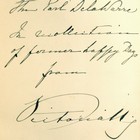 The Earl DelaWarr
In recollection
of former happy days
from
Victoria